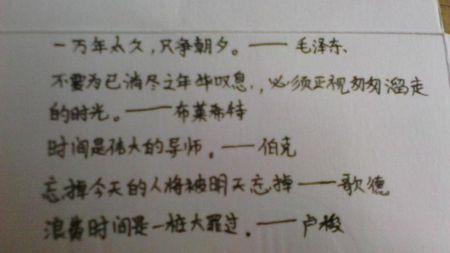 一万年太久，只争朝夕。——毛泽东
不要为已消尽之年华叹息，必须正视匆匆溜走
的时光。——布莱希特
时间是伟大的导师。——伯克
忘掉今天的人将被明天忘掉——歌德
浪费时间是一桩大罪过。——卢梭